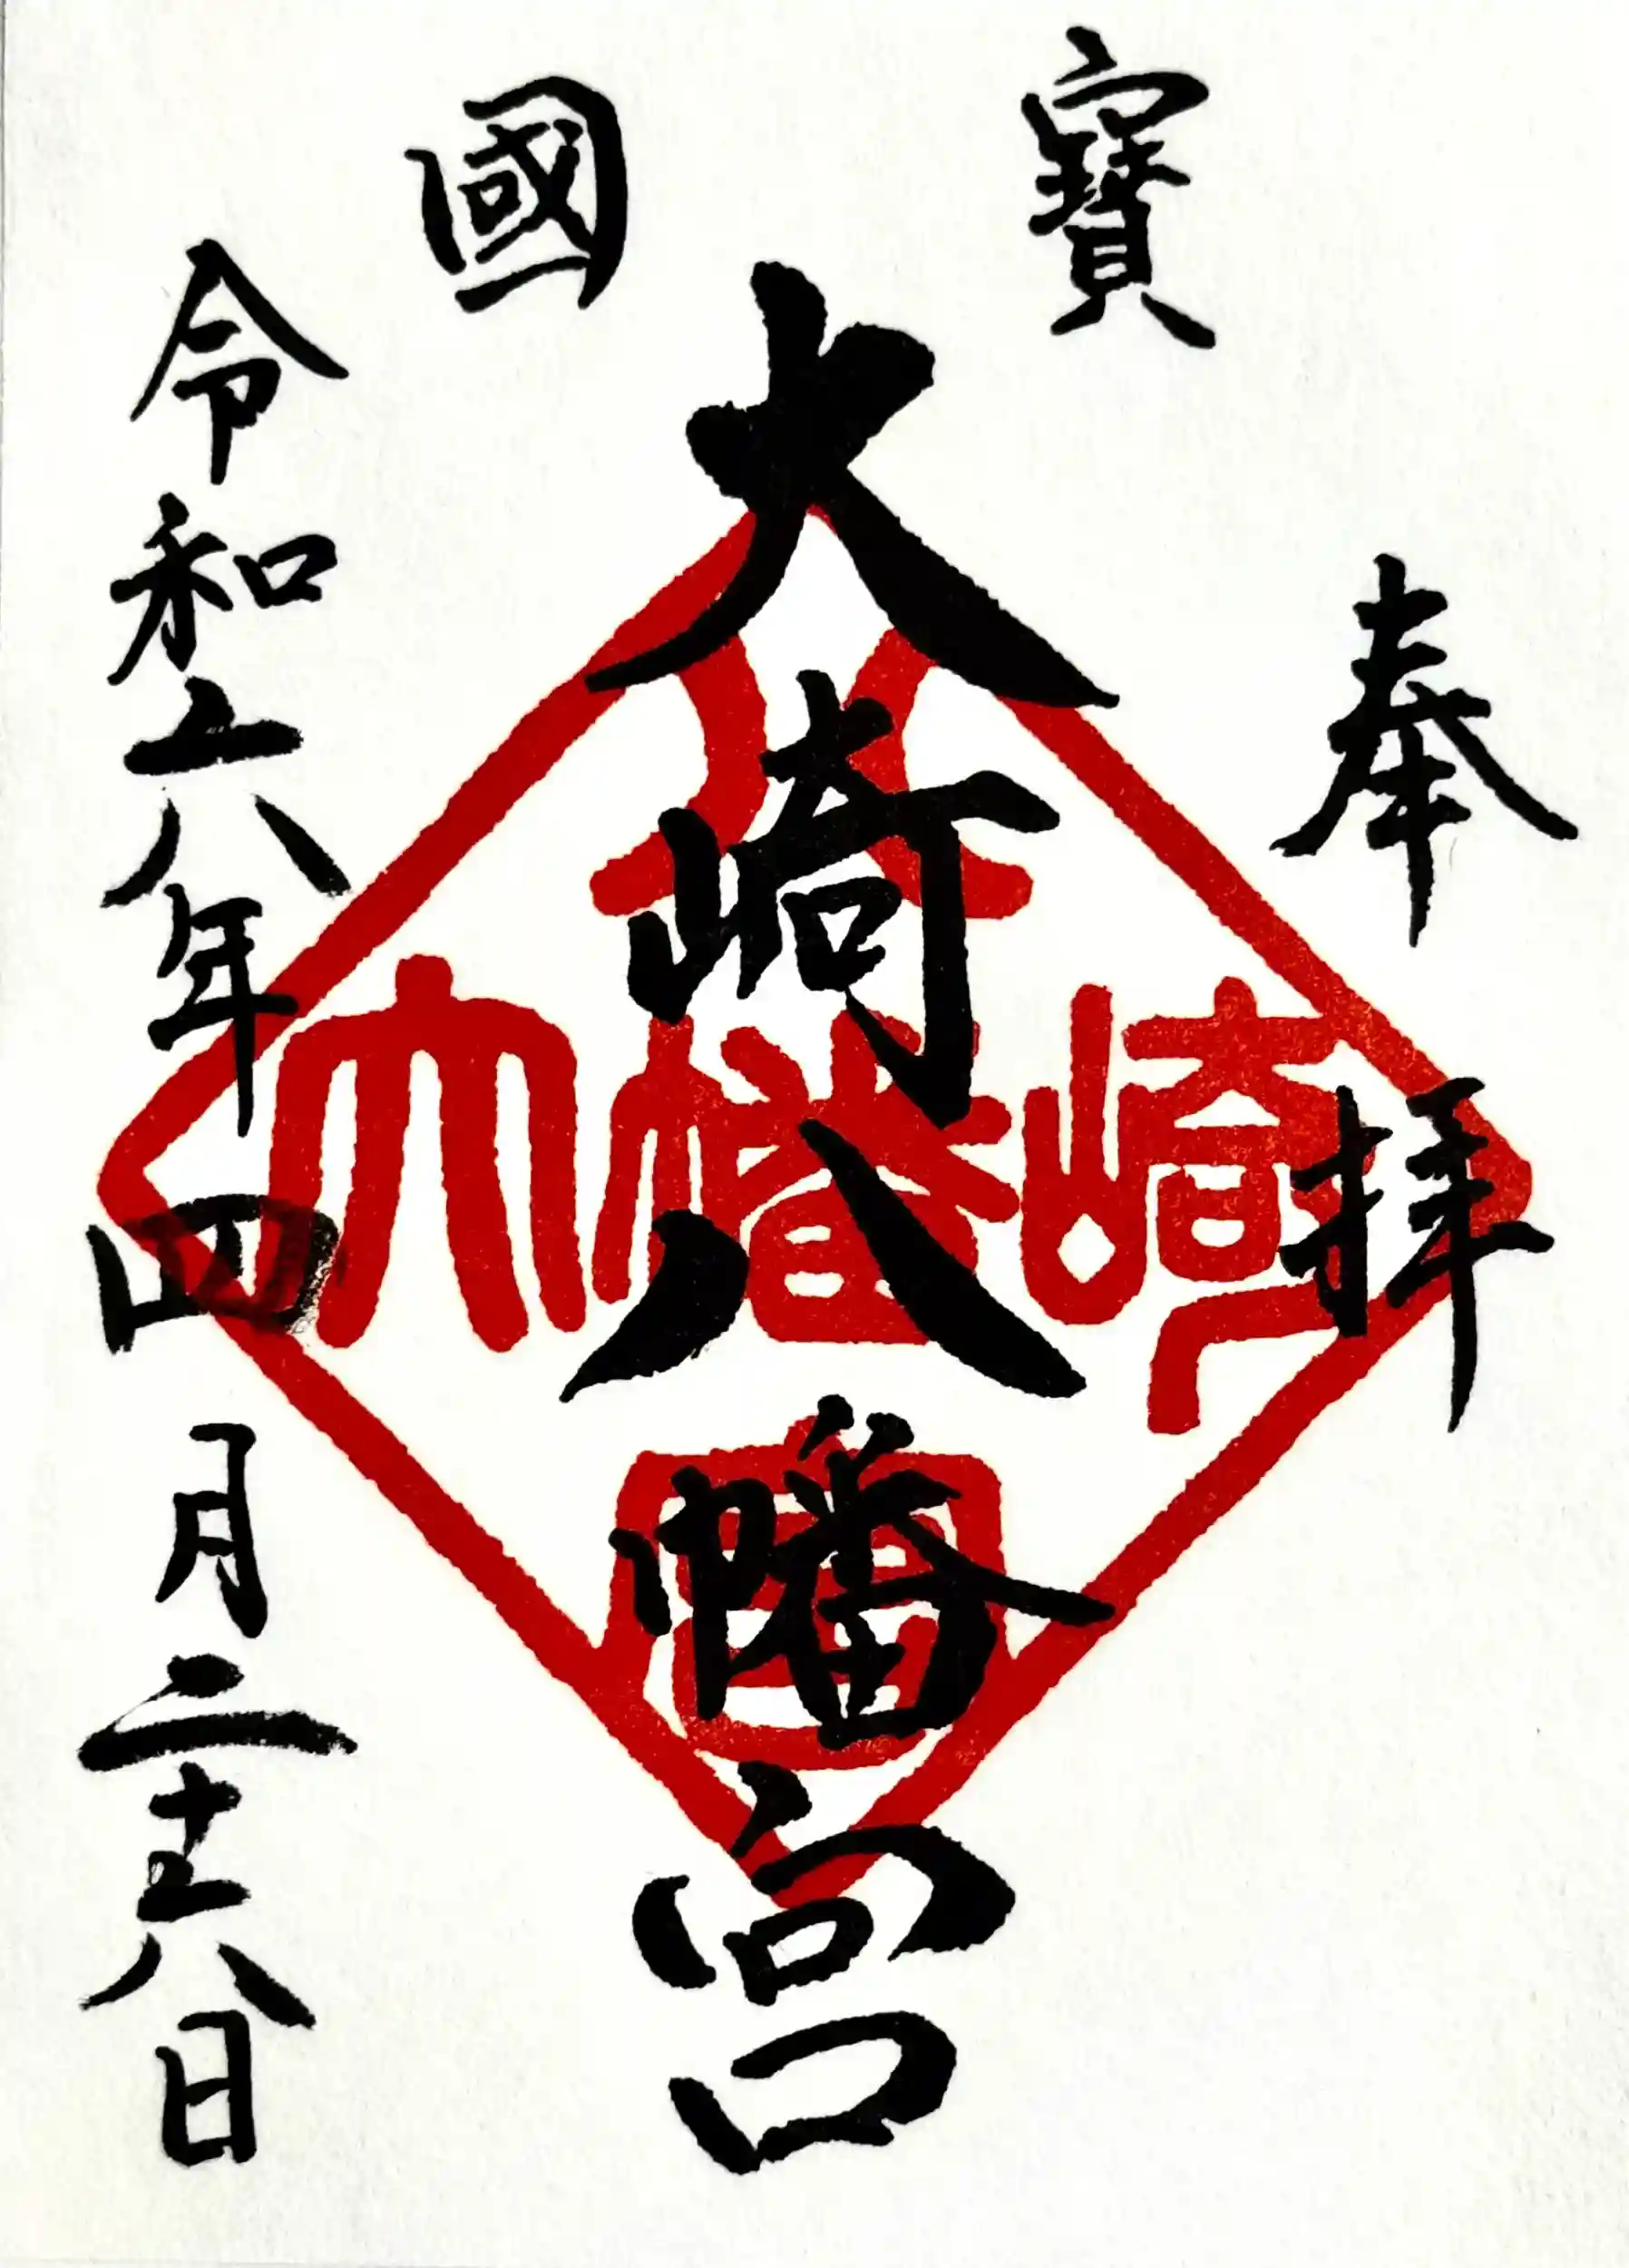 奉拝
國寶
大崎八幡宮
令和六年四月二十六日
大崎八幡宮